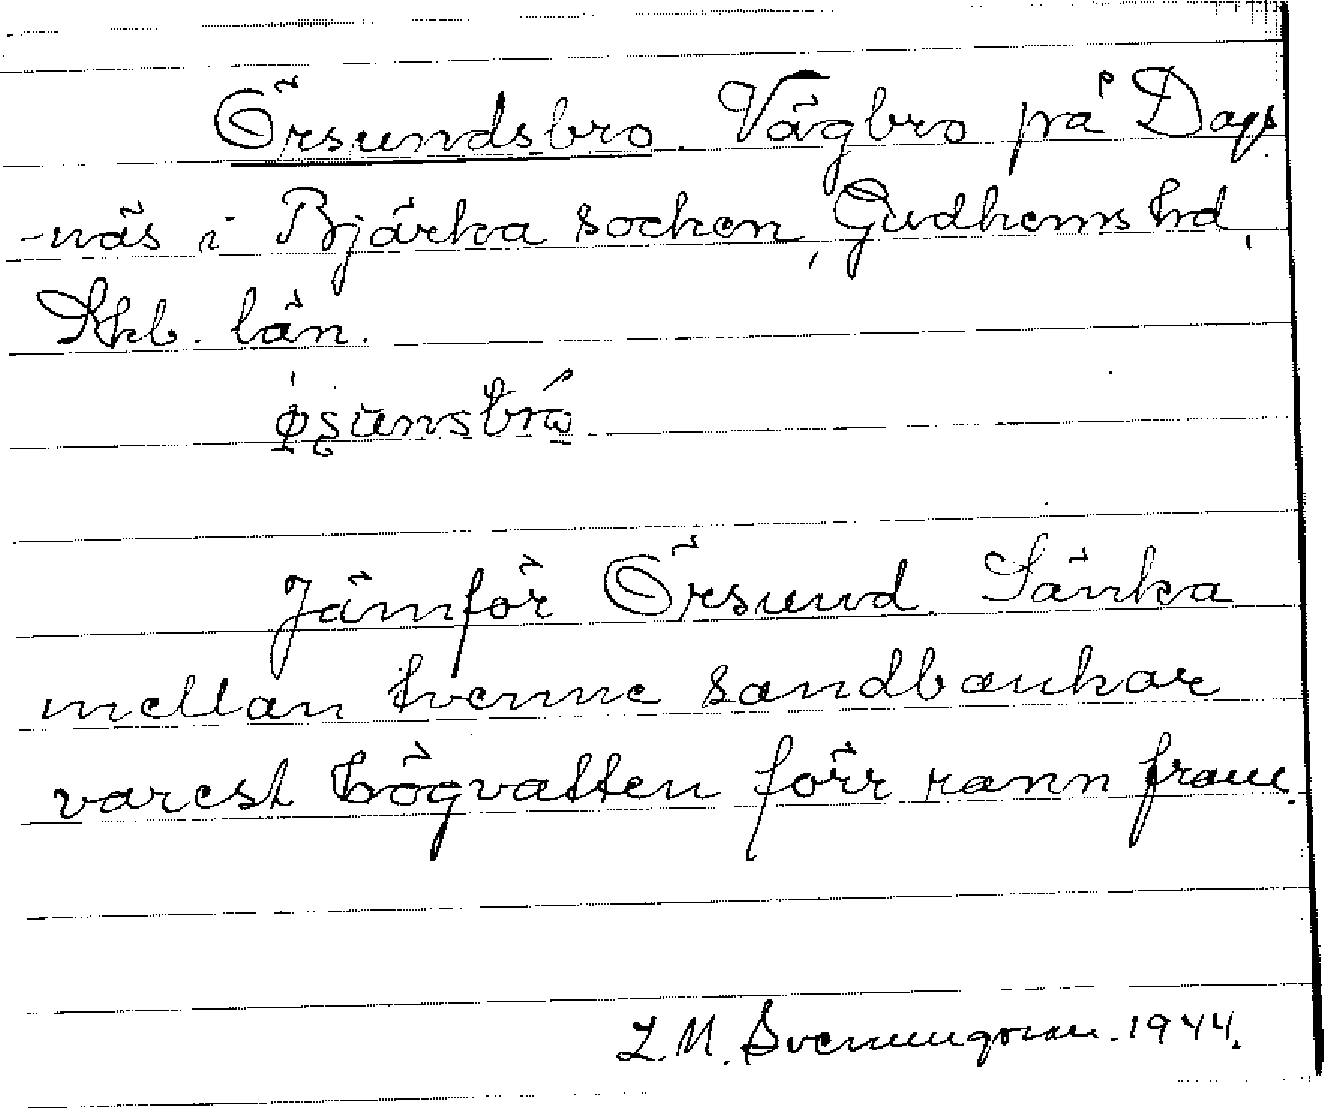 Örsundsbro. Vägbro på Dags
-näs i Bjärka socken, Gudhems hd,
Skb. län.
Jämför Örsund. Sänka
mellan tvenne sandbankar
varest högvatten förr rann fram.
L.M. Svenungsson. 1944.